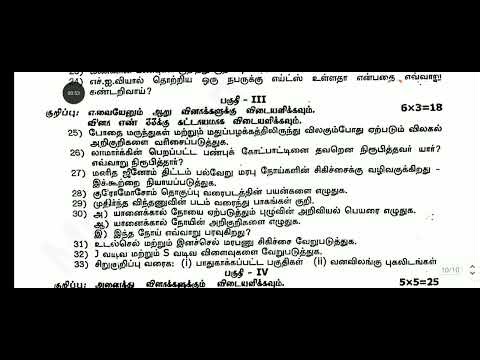 24) எச்.ஐ.வியால் தொற்றிய ஒரு நபருக்கு எய்ட்ஸ் உள்ளதா என்பதை எவ்வாறு
கண்டறிவாய்?
00:53
பகுதி - III
குறிப்பு: எவையேனும் ஆறு வினாக்களுக்கு விடையளிக்கவும். 6x3=18
வினா எண் க்கு கட்டாயமாக விடையளிக்கவும்.
25) போதை மருந்துகள் மற்றும் மதுப்பழக்கத்திலிருந்து விலகும்போது ஏற்படும் விலகல்
அறிகுறிகளை வரிசைப்படுத்துக.
26) லாமார்க்கின் பெறப்பட்ட பண்புக் கோட்பாட்டினை தவறென நிரூபித்தவர் யார்?
எவ்வாறு நிரூபித்தார்?
27) மனித ஜீனோம் திட்டம் பல்வேறு மரபு நோய்களின் சிகிச்சைக்கு வழிவகுக்கிறது -
இக்கூற்றை நியாயப்படுத்துக.
28) குரோமோசோம் தொகுப்பு வரைபடத்தின் பயன்களை எழுதுக.
29) முதிர்ந்த விந்தணுவின் படம் வரைந்து பாகங்கள் குறி.
30) அ) யானைக்கால் நோயை ஏற்படுத்தும் புழுவின் அறிவியல் பெயரை எழுதுக.
ஆ) யானைக்கால் நோயின் அறிகுறிகளை எழுதுக.
இ) இந்த நோய் எவ்வாறு பரவுகிறது?
31) உடல்செல் மற்றும் இனச்செல் மரபணு சிகிச்சை வேறுபடுத்துக.
32) J வடிவ மற்றும் S வடிவ விளைவுகளை வேறுபடுத்துக.
33) சிறுகுறிப்பு வரைக: (i) பாதுகாக்கப்பட்ட பகுதிகள் (ii) வனவிலங்கு புகலிடங்கள்
10/10
பகுதி - IV
குறிப்பு: அனைத்து வினாக்களுக்கும் விடையளிக்கவும். 5x5=25